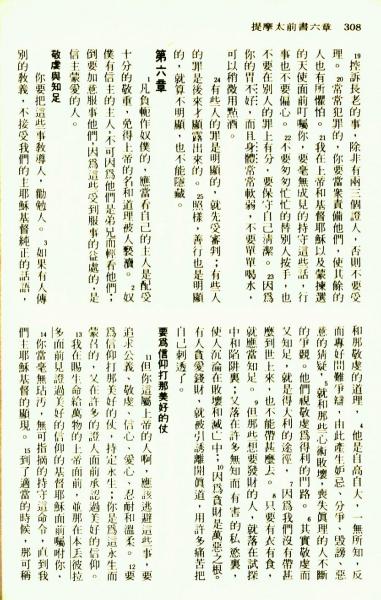 提摩太前書六章 308
19控訴長老的事，除非有兩三個證人，否則不要受
理。20常常犯罪的，你要當眾責備他們，使其餘的
人也有所懼怕。21我在上帝和基督耶穌以及蒙揀選
的天使面前叮囑你，要毫無成見的持守這些話，行
事也不要偏心。22不要匆匆忙忙的替別人按手，也
不要在別人的罪上有分，要保守自己清潔。23因爲
你的胃不好，而且身體常常軟弱，不要單單喝水，
可以稍微用點酒。
24有些人的罪是明顯的，就先受審判；有些人
的罪是後來才顯露出來的。25照樣，善行也是明顯
的，就算不明顯，也不能隱藏。
第六章
1凡負軛作奴僕的，應當看自己的主人是配受
十分的敬重，免得上帝的名和道理被人褻瀆。2奴
僕有信主的主人，不可因爲他們是弟兄而輕看他們；
倒要加意服事他們，因爲這些受到服事的益處的，是
信主蒙愛的人。
敬虔與知足
你要把這些事教導人，勸勉人。3如果有人傳
別的教義，不接受我們的主耶穌基督純正的話語，
和那敬虔的道理，4他是自高自大，一無所知，反
而專好問難爭辯，由此產生妒忌、分爭、毀謗、惡
意的猜疑，5就和那些心術敗壞、喪失真理的人不斷
的爭競。他們視敬虔爲得利的門路。6其實敬虔而
又知足，就是得大利的途徑，7因爲我們沒有帶甚
麼到世上來，也不能帶甚麼去。8只要有衣有食，
就應當知足。9但那些想要發財的人，就落在試探
中和陷阱裏；又落在許多無知而有害的私慾裏，
使人沉淪在敗壞和滅亡中；10因爲貪財是萬惡之根。
有人貪愛錢財，就被引誘離開真道，用許多痛苦把
自己刺透了。
要爲信仰打那美好的仗
11但你這屬上帝的人啊，應該逃避這些事，要
追求公義、敬虔、信心、愛心、忍耐和溫柔。12要
爲信仰打那美好的仗，持定永生；你是爲這永生而
蒙召的，又在許多的證人面前承認過美好的信仰。
13我在賜生命給萬物的上帝面前，並那在本丟彼拉
多面前見證過美好的信仰的基督耶穌面前囑咐你，
14你當毫無玷污，無可指摘的持守這命令，直到我
們主耶穌基督的顯現。15到了適當的時候，那可稱